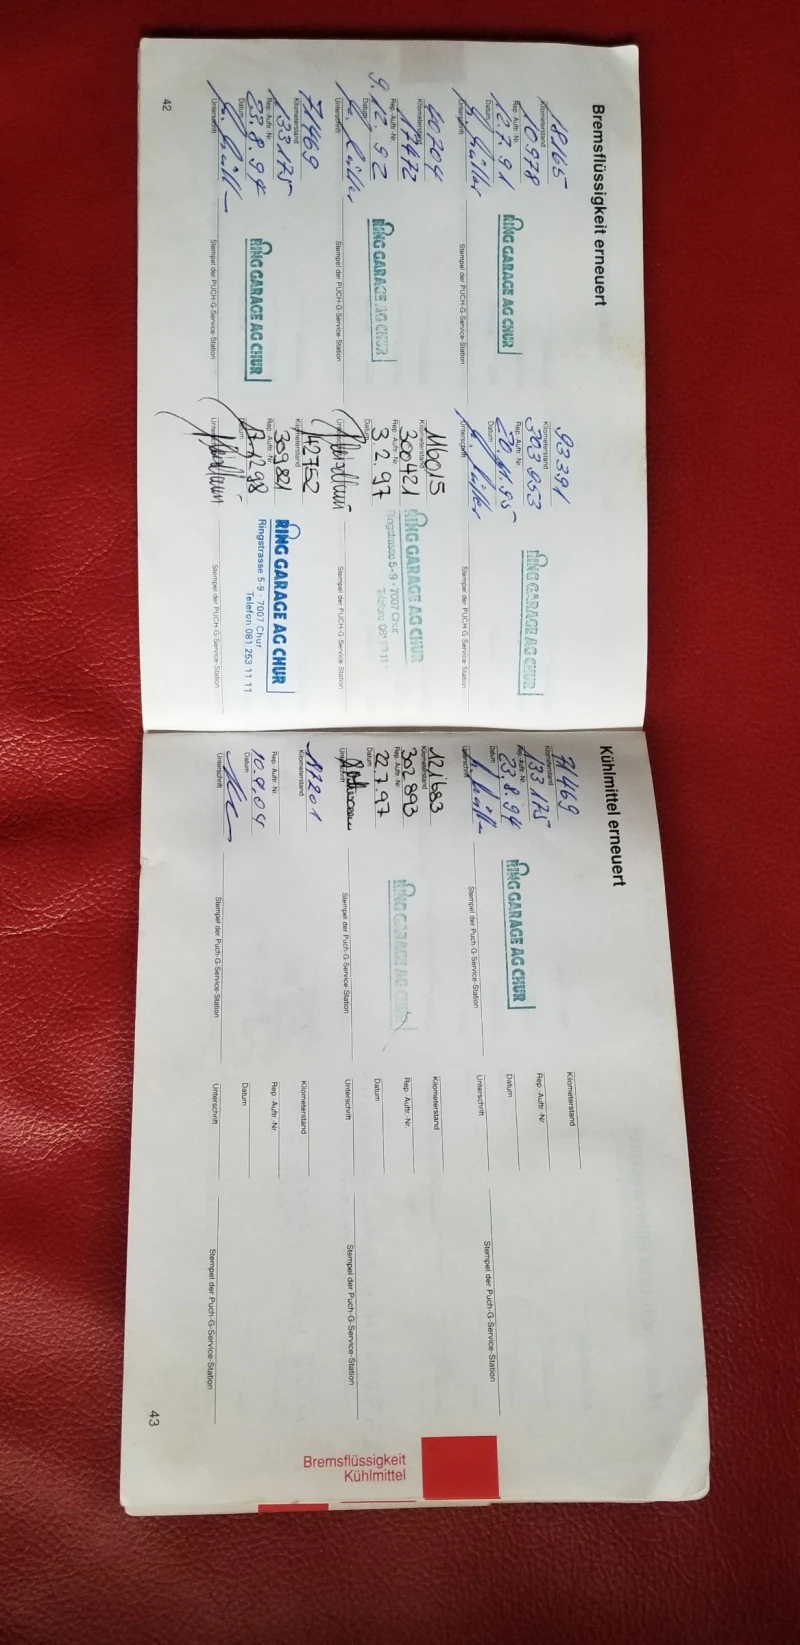 Bremsflüssigkeit erneuert
18165
Kilometerstand
10978
Rep.-Auftr.-Nr.
12.7.91
Datum
Unterschrift
RING GARAGE AG CHUR
Stempel der PUCH-G-Service-Station
40704
Kilometerstand
17472
Rep.-Auftr.-Nr.
9.12.92
Datum
Unterschrift
RING GARAGE AG CHUR
Stempel der PUCH-G-Service-Station
71469
Kilometerstand
133175
Rep.-Auftr.-Nr.
23.8.94
Datum
Unterschrift
RING GARAGE AG CHUR
Stempel der PUCH-G-Service-Station
42
93391
Kilometerstand
303953
Rep.-Auftr.-Nr.
20.11.95
Datum
Unterschrift
RING GARAGE AG CHUR
Stempel der PUCH-G-Service-Station
116015
Kilometerstand
300421
Rep.-Auftr.-Nr.
3.2.97
Datum
Unterschrift
RING GARAGE AG CHUR
Ringstrasse 5-9 · 7007 Chur
Stempel der PUCH-G-Service-Station
142752
Kilometerstand
309821
Rep.-Auftr.-Nr.
Datum
Unterschrift
RING GARAGE AG CHUR
Ringstrasse 5-9 · 7007 Chur
Telefon 081 253 11 11
Stempel der PUCH-G-Service-Station
Kühlmittel erneuert
71469
Kilometerstand
133175
Rep.-Auftr.-Nr.
23.8.94
Datum
Unterschrift
RING GARAGE AG CHUR
Stempel der Puch-G-Service-Station
121683
Kilometerstand
302893
Rep.-Auftr.-Nr.
22.7.97
Datum
Unterschrift
RING GARAGE AG CHUR
Stempel der Puch-G-Service-Station
187201
Kilometerstand
Rep.-Auftr.-Nr.
10.9.04
Datum
Unterschrift
Stempel der Puch-G-Service-Station
Kilometerstand
Rep.-Auftr.-Nr.
Datum
Unterschrift
Stempel der Puch-G-Service-Station
Kilometerstand
Rep.-Auftr.-Nr.
Datum
Unterschrift
Stempel der Puch-G-Service-Station
Kilometerstand
Rep.-Auftr.-Nr.
Datum
Unterschrift
Stempel der Puch-G-Service-Station
43
Bremsflüssigkeit
Kühlmittel